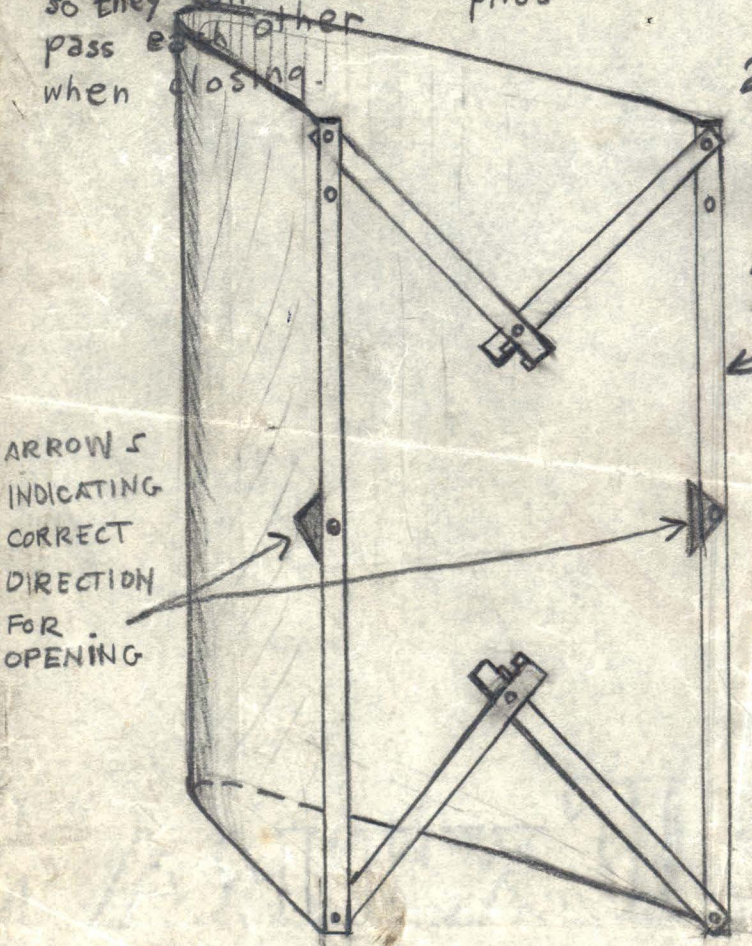 so they
pass each other
when closing.
ARROWS
INDICATING
CORRECT
DIRECTION
FOR
OPENING